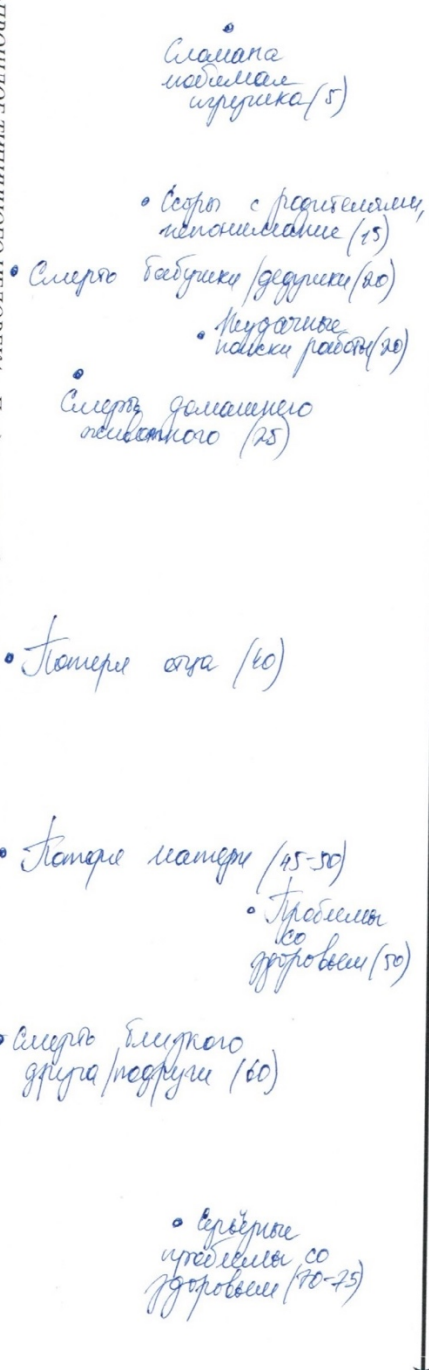 Сломана
любимая
игрушка (5)
• Ссоры с родителями,
непонимание (15)
• Смерть бабушки/дедушки (20)
• Неудачные
поиски работы (20)
Смерть домашнего
животного (25)
• Потеря отца (40)
• Потеря матери (45-50)
• Проблемы
со
здоровьем (50)
• Смерть близкого
друга/подруги (60)
• Серьёзные
проблемы со
здоровьем (70-75)